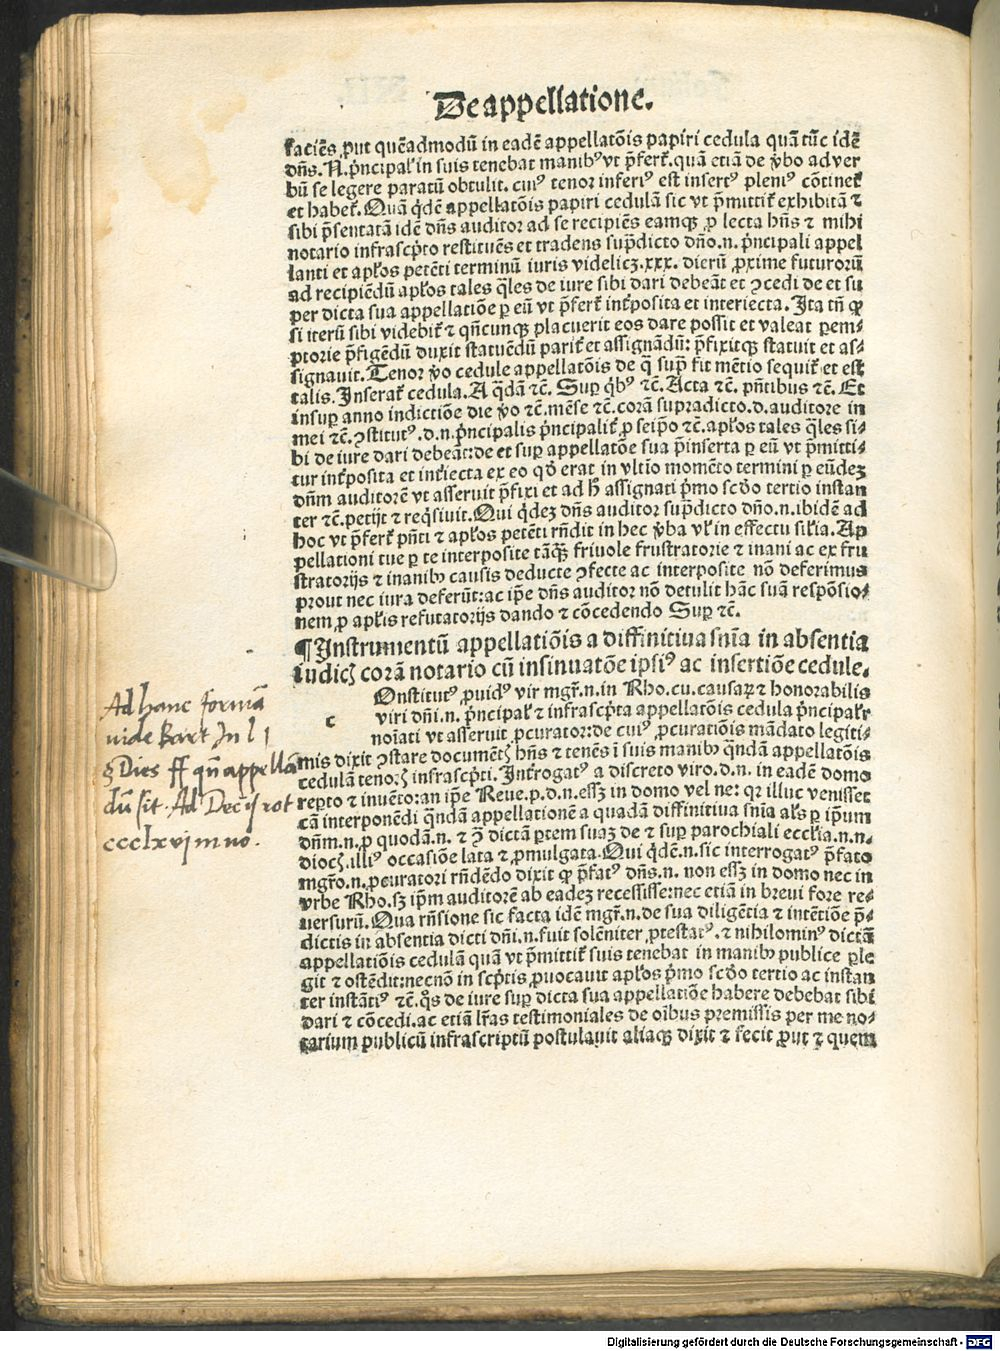 De appellatione.
faciẽs ꝓut quẽadmodũ in eadẽ appellatõis papiri cedula quã tũc idẽ
dñs. N. pͥncipal' in suis tenebat manibꝰ vt p̃fert̃. quã etiã de ṽbo ad ver
bũ se legere paratũ obtulit. cuiꝰ tenor inferiꝰ est insertꝰ pleniꝰ cõtinet̃
et habet̃. Quã qͥdẽ appellatõis papiri cedulã sic vt p̃mittit̃ exhibitã ⁊
sibi p̃sentatã idẽ dñs auditor ad se recipiẽs eamqꝫ ꝑ lecta hñs ⁊ mihi
notario infrascp̃to restituẽs et tradens sup̃dicto dño. n. pͥncipali appel
lanti et ap̃los petẽti terminũ iuris videlicꝫ. xxx. dierũ ꝓxime futurorũ
ad recipiẽdũ ap̃los tales q̃les de iure sibi dari debeãt et ꝯcedi de et su
per dicta sua appellatiõe ꝑ eũ vt p̃fert̃ int̃posita et interiecta. Ita tñ ꝙ
si iterũ sibi videbit̃ ⁊ qñcunqꝫ placuerit eos dare possit et valeat ꝑem⸗
ptorie p̃figẽdũ duxit statuẽdũ parit̃ et assignãdũ: p̃fixitqꝫ statuit et as⸗
signauit. Tenor ṽo cedule appellatõis de q̃ sup̃ fit mẽtio sequit̃ et est
talis. Inserat̃ cedula. A q̃dã ⁊c̃. Suꝑ qͥbꝰ ⁊c̃. Acta ⁊c̃. pñtibus ⁊c̃. Et
insuꝑ anno indictiõe die ṽo ⁊c̃. mẽse ⁊c̃. corã supradicto. d. auditore in
mei ⁊c̃. ꝯstitutꝰ. d. n. pͥncipalis pͥncipalit̃ ꝑ seip̃o ⁊c̃. ap̃los tales q̃les si⸗
bi de iure dari debeãt: de et suꝑ appellatõe sua p̃inserta ꝑ eũ vt p̃mitti⸗
tur int̃posita et int̃iecta ex eo qð erat in vltĩo momẽto termini ꝑ eũdeꝫ
dñm auditorẽ vt asseruit p̃fixi et ad h̃ assignati pͥmo scðo tertio instan
ter ⁊c̃. petijt ⁊ reqͥsiuit. Qui qͥdeꝫ dñs auditor sup̃dicto dño. n. ibidẽ ad
hoc vt p̃fert̃ pñti ⁊ ap̃los petẽti rñdit in hec ṽba vl' in effectu sil'ia. Ap
pellationi tue ꝑ te interposite tãqꝫ̃ friuole frustratorie ⁊ inani ac ex fru
stratorijs ⁊ inanibꝫ causis deducte ꝯfecte ac interposite nõ deferimus
prout nec iura deferũt: ac ip̃e dñs auditor nõ detulit hãc suã respõsio⸗
nem ꝓ ap̃lis refutatorijs dando ⁊ cõcedendo Suꝑ ⁊c̃.
¶ Instrumentũ appellatiõis a diffinitiua sñia in absentia
iudicꝭ corã notario cũ insinuatõe ipsiꝰ ac insertiõe cedule.
c Onstitutꝰ ꝓuidꝰ vir mgr̃. n. in Rho. cu. causaꝝ ⁊ honorabilis
viri dñi. n. pͥncipal' ⁊ infrascp̃ta appellatõis cedula pͥncipalr̃
noĩati vt asseruit ꝓcurator: de cuiꝰ ꝓcuratiõis mãdato legiti⸗
mis dixit ꝯstare documẽtꝭ hñs ⁊ tenẽs ĩ suis manibꝫ qñdã appellatõis
cedulã tenorꝭ infrascp̃ti. Int̃rogatꝰ a discreto viro. d. n. in eadẽ domo
repto ⁊ inuẽto: an ip̃e Reue. p. d. n. essꝫ in domo vel ne: qꝛ illuc venisset
cã interponẽdi qñdã appellationẽ a quadã diffinitiua sñia al's ꝑ ip̃um
dñm. n. ꝓ quodã. n. ⁊ ꝯ̃ dictã ꝑtem suaꝫ de ⁊ suꝑ parochiali eccl'ia. n. n.
diocꝭ. illiꝰ occasiõe lata ⁊ ꝓmulgata. Qui qͥdẽ. n. sic interrogatꝰ p̃fato
mgr̃o. n. ꝓcuratori rñdẽdo dixit ꝙ p̃fatꝰ dñs. n. non essꝫ in domo nec in
vrbe Rho. sꝫ ip̃m auditorẽ ab eadeꝫ recessisse: nec etiã in breui fore re⸗
uersurũ. Qua rñsione sic facta idẽ mgr̃. n. de sua diligẽtia ⁊ intẽtiõe p̃⸗
dictis in absentia dicti dñi. n. fuit solẽniter ꝓtestatꝰ. ⁊ nihilominꝰ dictã
appellatiõis cedulã quã vt p̃mittit̃ suis tenebat in manibꝫ publice ꝑle
git ⁊ ostẽdit: necnõ in scp̃tis ꝓuocauit ap̃los pͥmo scðo tertio ac instan
ter instãtiꝰ ⁊c̃. q̊s de iure suꝑ dicta sua appellatiõe habere debebat sibi
dari ⁊ cõcedi. ac etiã lr̃as testimoniales de oĩbus premissis per me no⸗
tarium publicũ infrascriptũ postulauit aliaqꝫ dixit ⁊ fecit ꝓut ⁊ quem
Ad hanc formã
uide Bart In l
Dies ff qñ appellã
dũ sit. Ad Decis rot
cccclxvj in no.
Digitalisierung gefördert durch die Deutsche Forschungsgemeinschaft - DFG